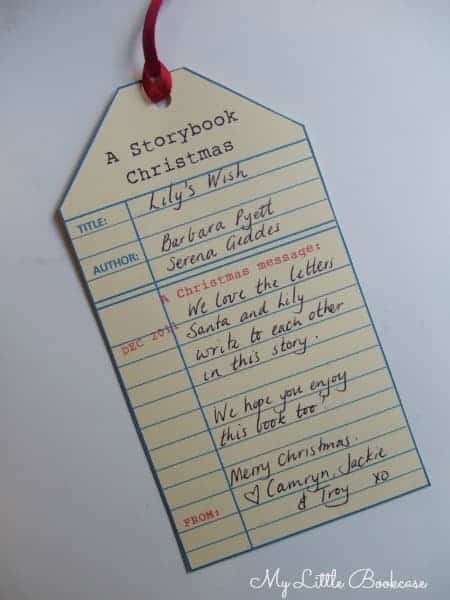 A Storybook
Christmas
TITLE: Lily's Wish
AUTHOR: Barbara Pyett
Serena Geddes
A Christmas message:
DEC 2011 We love the letters
Santa and Lily
write to each other
in this story.
We hope you enjoy
this book too!
Merry Christmas.
♡ Camryn, Jackie
FROM: & Troy xo
My Little Bookcase